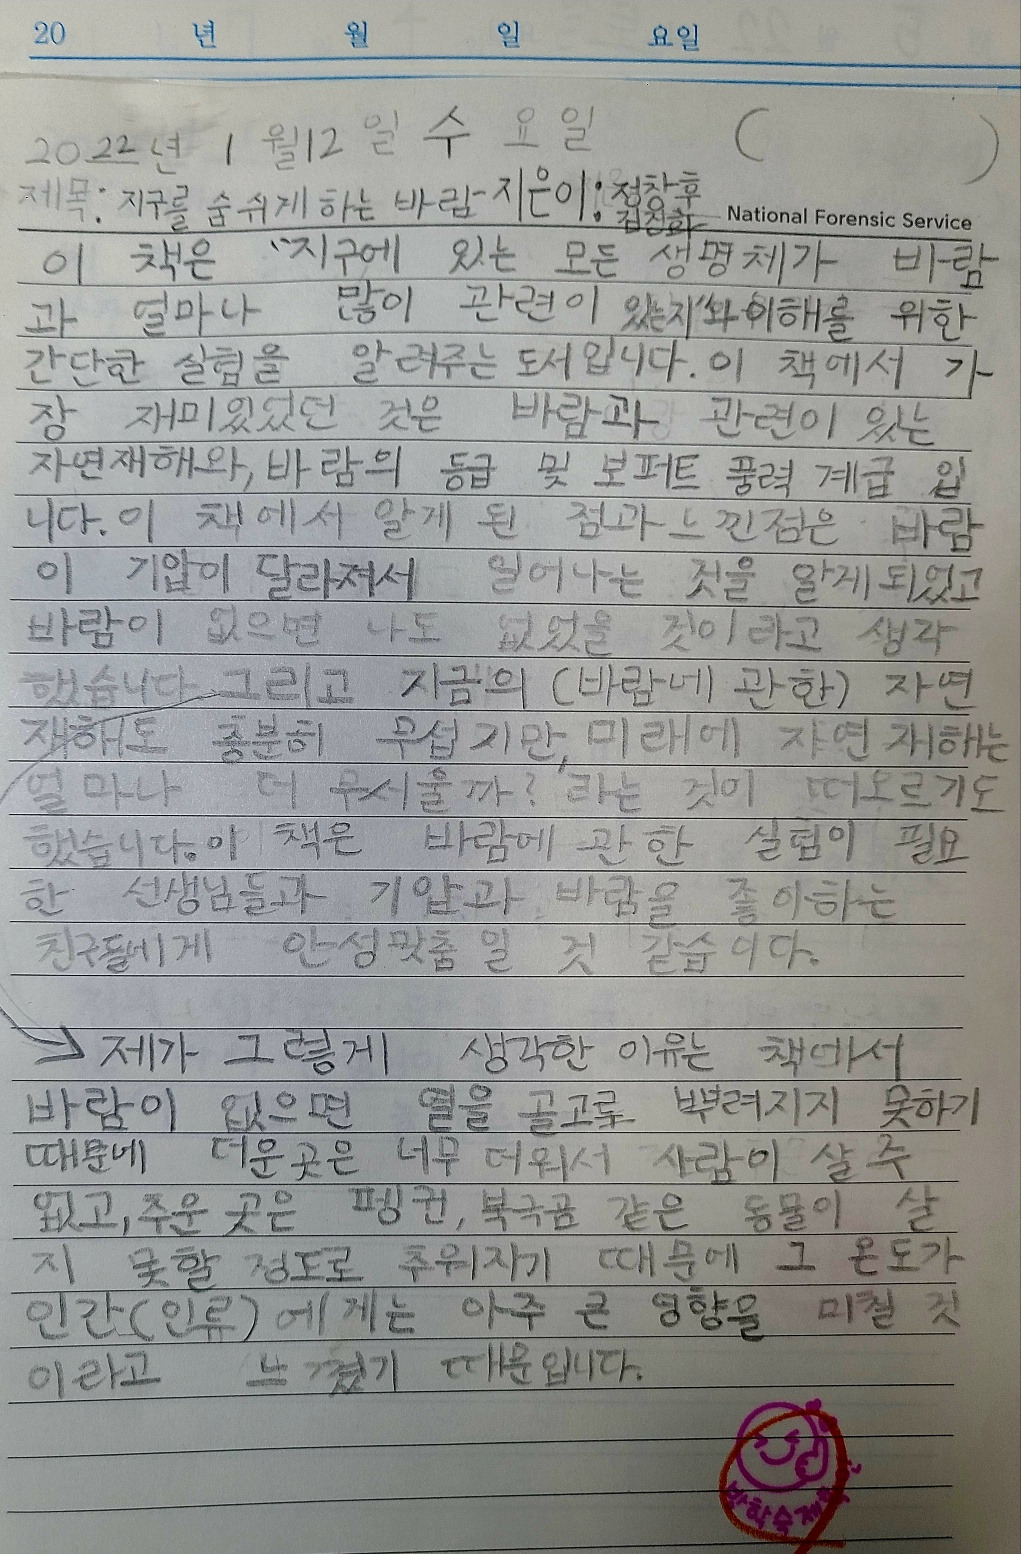 20 년 월 일 요일
2022년 1월12일 수요일 ( )
제목: 지구를 숨쉬게 하는 바람 지은이: 정창훈
National Forensic Service
이 책은 "지구에 있는 모든 생명체가 바람
과 얼마나 많이 관련이 있는지"와 이해를 위한
간단한 실험을 알려주는 도서입니다. 이 책에서 가
장 재미있었던 것은 바람과 관련이 있는
자연재해와, 바람의 등급 및 보퍼트 풍력 계급 입
니다. 이 책에서 알게 된 점과 느낀점은 바람
이 기압이 달라져서 일어나는 것을 알게되었고
바람이 없으면 나도 없었을 것이라고 생각
했습니다 그리고 지금의 (바람에 관한) 자연
재해도 충분히 무섭지만, 미래에 자연재해는
얼마나 더 무서울까? 라는 것이 떠오르기도
했습니다. 이 책은 바람에 관한 실험이 필요
한 선생님들과 기압과 바람을 좋아하는
친구들에게 안성맞춤 일 것 같습니다.
→ 제가 그렇게 생각한 이유는 책에서
바람이 없으면 열을 골고루 뿌려지지 못하기
때문에 더운곳은 너무 더워서 사람이 살 수
없고, 추운 곳은 펭귄, 북극곰 같은 동물이 살
지 못할 정도로 추워지기 때문에 그 온도가
인간(인류)에게는 아주 큰 영향을 미칠 것
이라고 느꼈기 때문입니다.
방학숙제